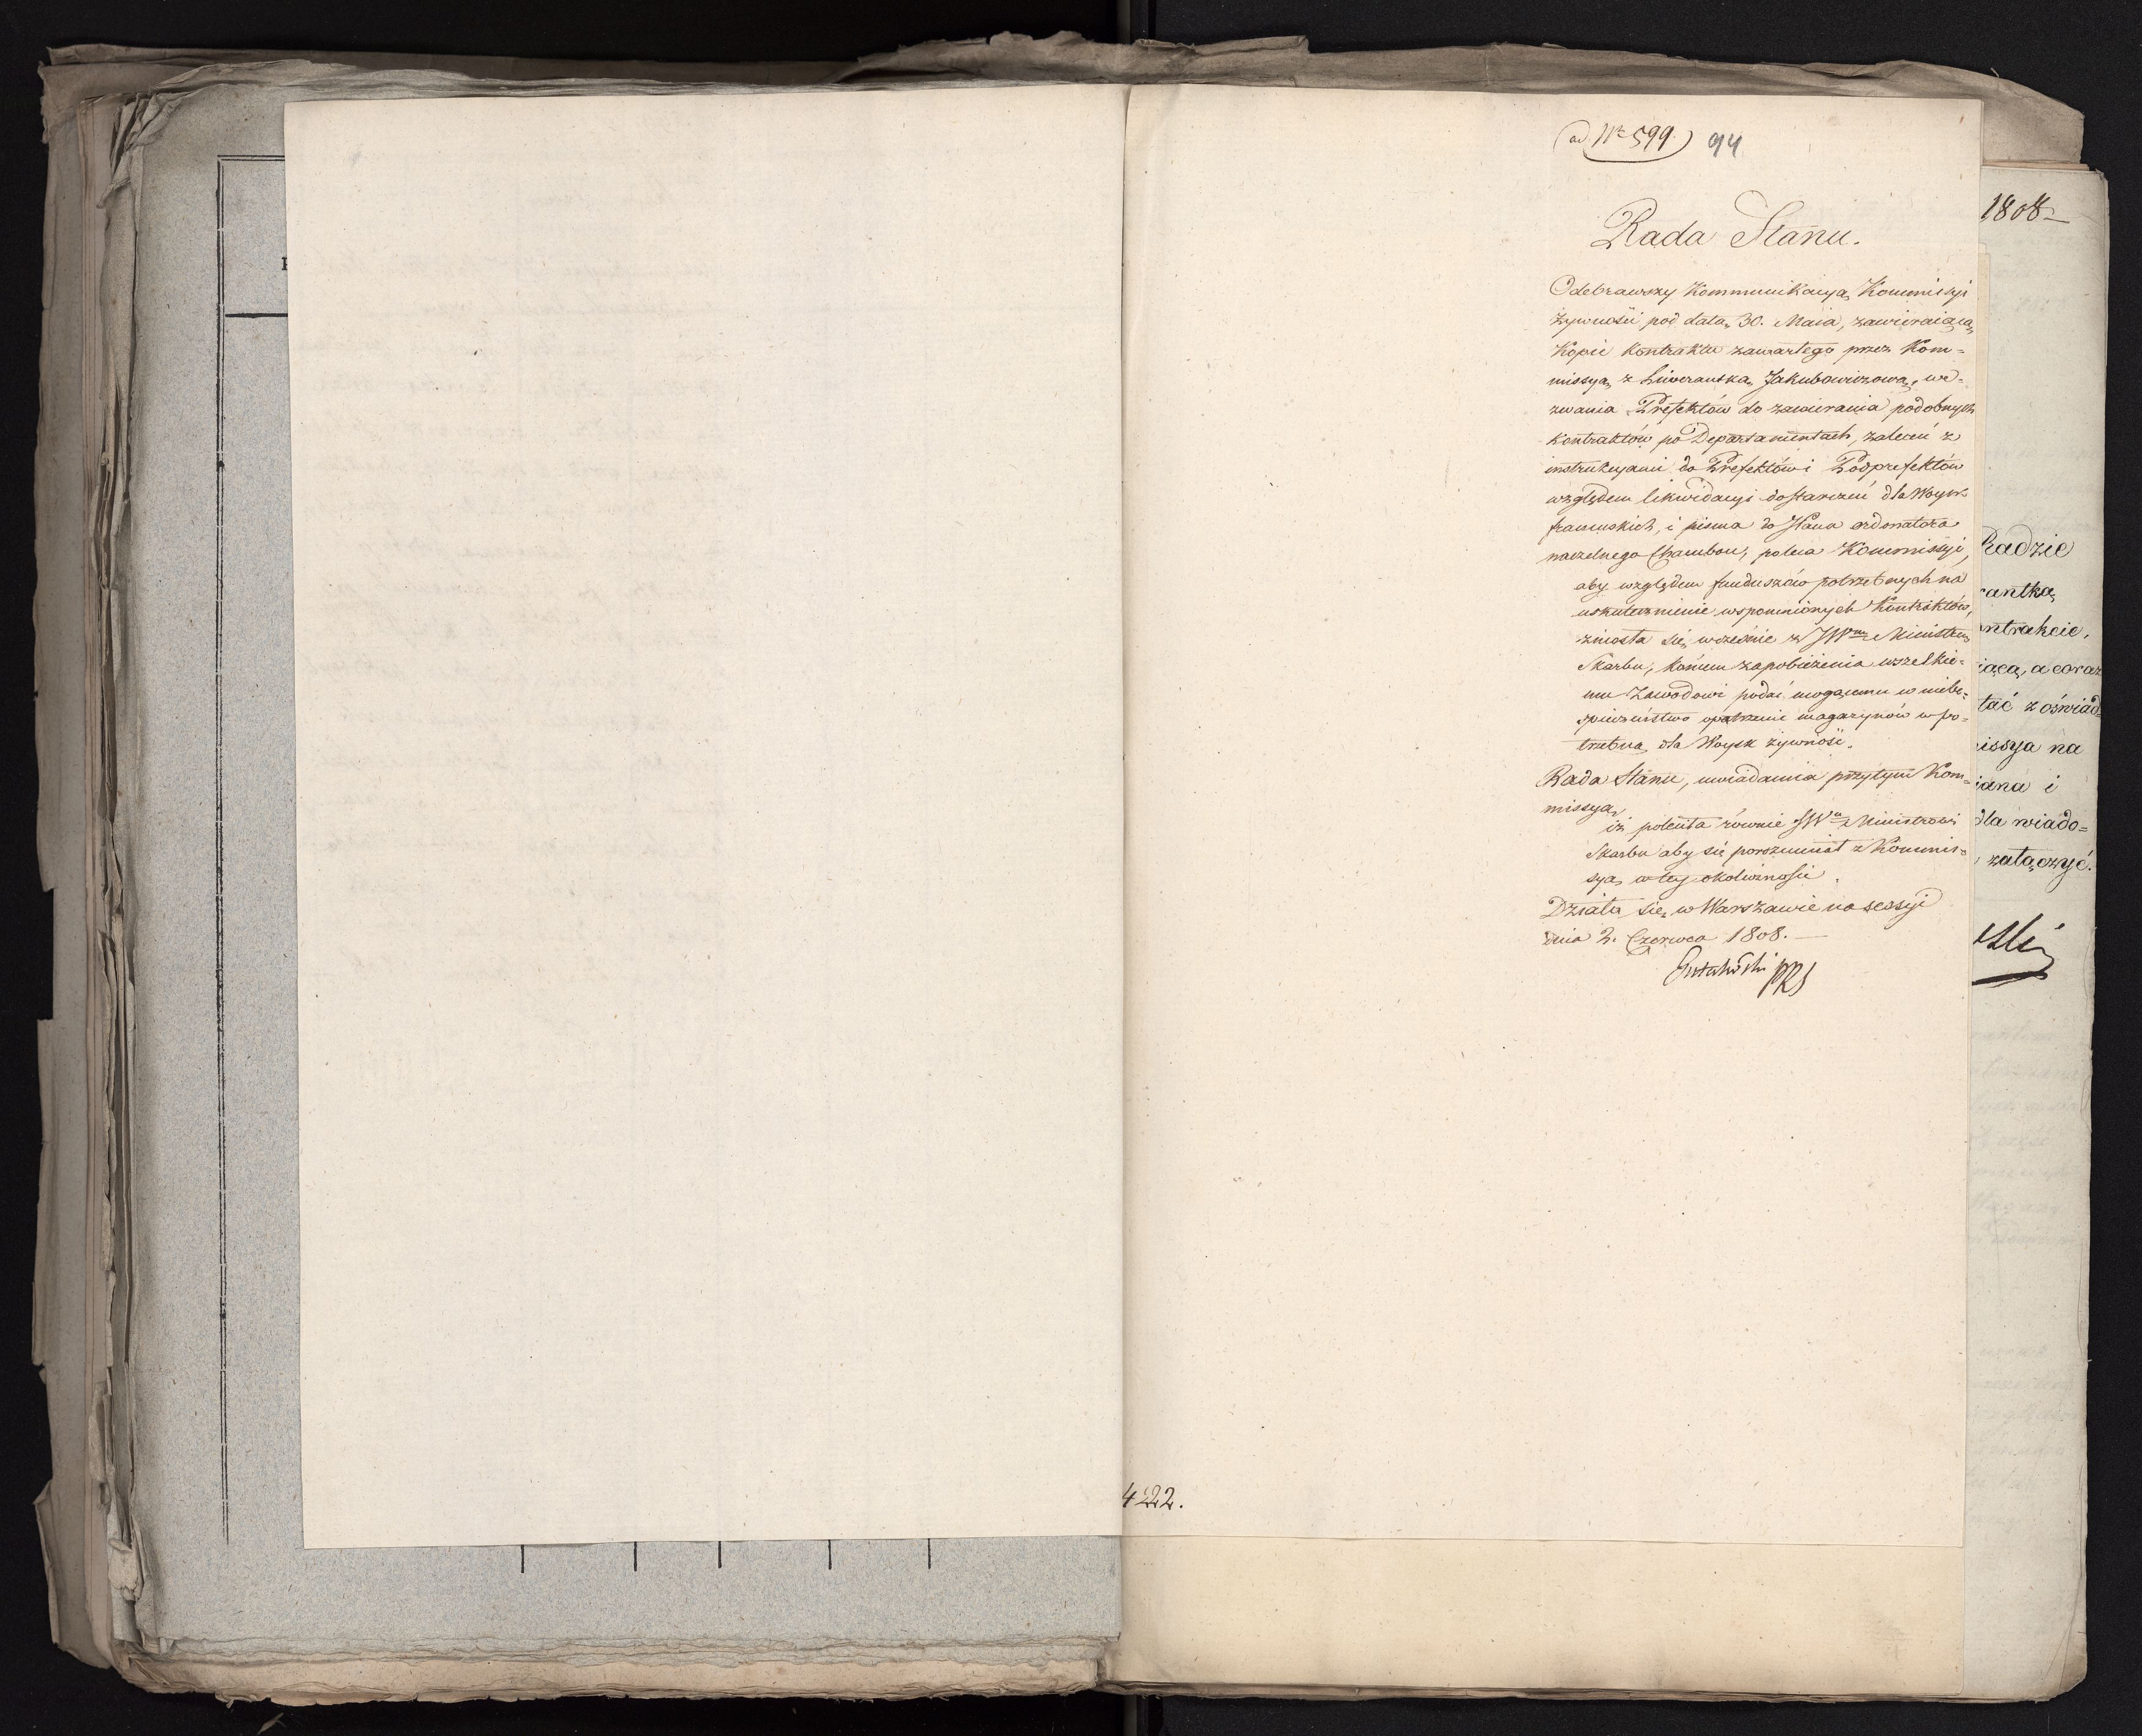 ad Nr 599. 94
Rada Stanu.
Odebrawszy Kommunikacyą Kommissyi
Żywności pod datą 30. Maia, zawieraiącą
Kopie Kontraktu zawartego przez Kom=
missyą z Liwerantką Jakubowiczową, we=
zwania Prefektów do zawierania podobnych
kontraktów po Departamentach, zaleceń z
instrukcyami do Prefektów i Podprefektów
względem likwidacyi dostarczeń dla Woysk
francuskich, i pisma do Pana ordonatora
naczelnego Chambon, poleca Kommissyi,
aby względem funduszów potrzebnych na
uskutecznienie wspomnionych Kontraktów,
zniosła się wcześnie z JWm Ministrem
Skarbu, końcem zapobieżenia wszelkie=
mu zawodowi podać mogącemu w niebe=
spieczeństwo opatrzenie magazynów w po=
trzebną dla Woysk żywność.
Rada Stanu, uwiadamia przytym Kom=
missyą,
iż poleciła równie JWu Ministrowi
Skarbu aby się porozumiał z Kommis=
syą w tey okoliczności.
Działo się w Warszawie na sessyi
dnia 2. Czerwca 1808.—
Gutakowski PRS
422.
1808
Radzie
rantką
ntrakcie,
iącą, a coraz
tać z oświad
issya na
iana i
dla wiado=
załączyć.